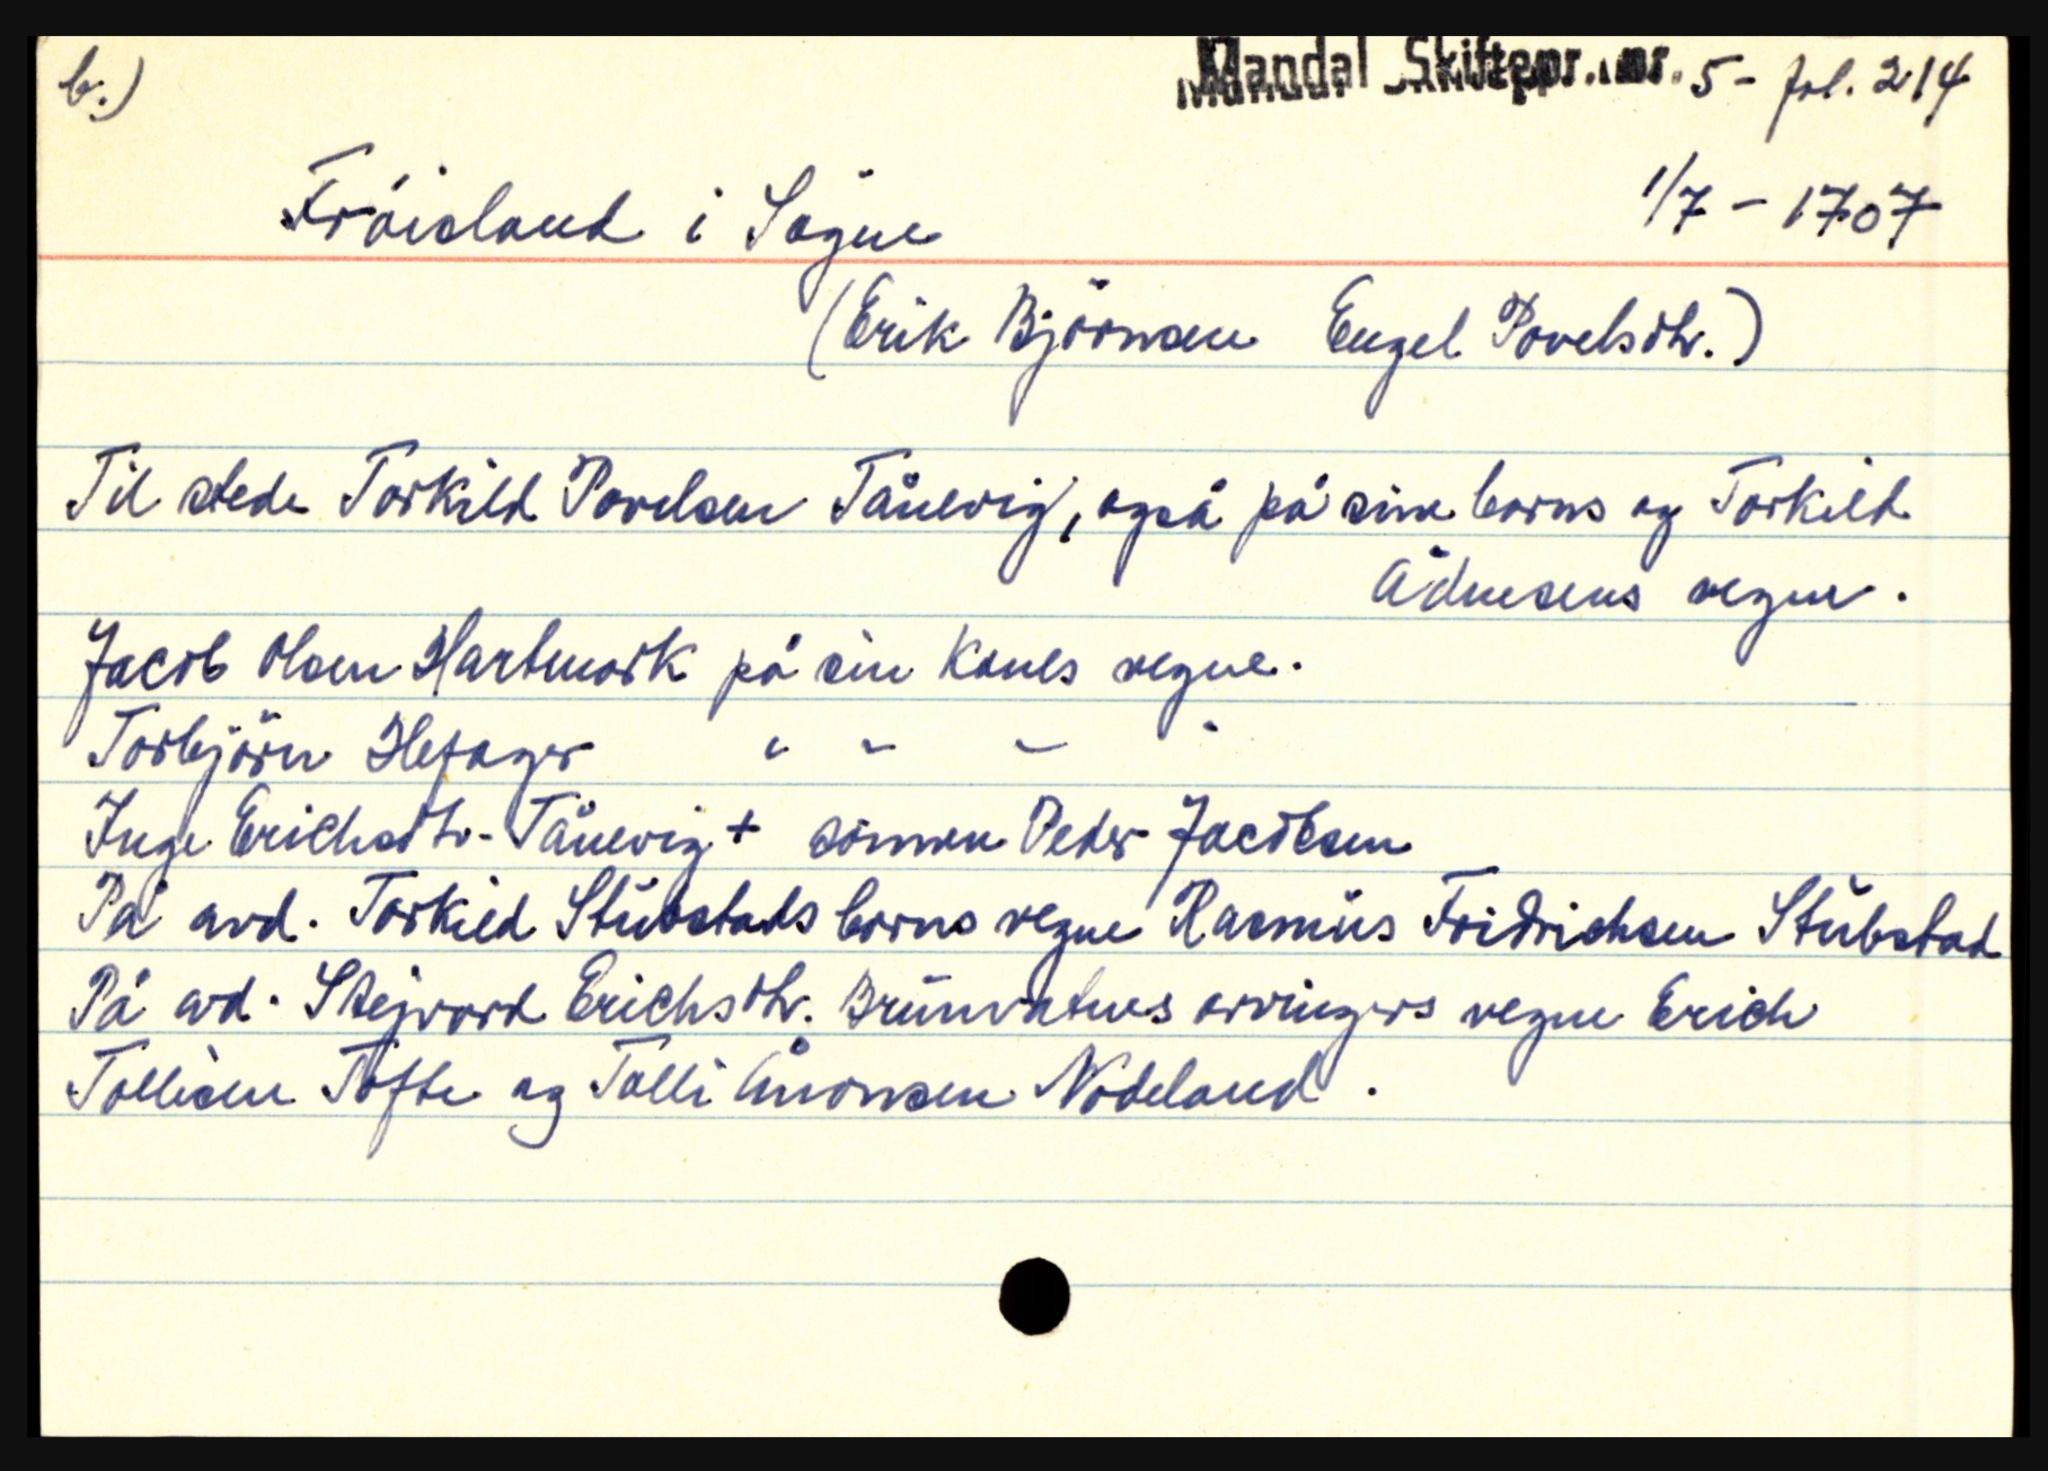 b.)
Mandal Skiftepr. nr. 5 - fol. 214
Fröisland i Søgne
1/7 - 1707
(Erik Björnsen Engel Povelsdtr.)
Til stede Torkild Povelsen Tånevig, også på sine borns og Torkild
Ådnesens vegne.
Jacob Olsen Hartmark på sin kones vegne.
Torbjörn Hefager " " " "
Inge Erichsdtr. Tånevig + sönnen Peder Jacobsen
På avd. Torkild Stubstads borns vegne Rasmus Fridrichsen Stubstad
På avd. Siejvord Erichsdtr. Brunvatnes arvingers vegne Erich
Tollisen Tofte og Tolli Ånonsen Nodeland.